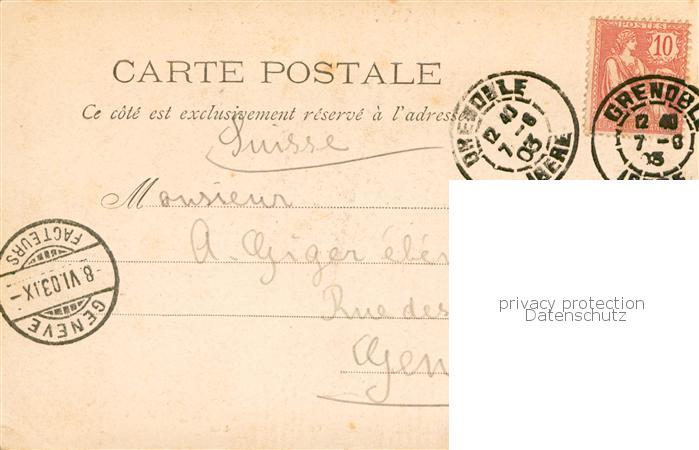 POSTES
10
CARTE POSTALE
GRENOBLE
12 40
7 - 6
03
ISERE
GRENOBLE
12 40
7 - 6
03
ISERE
Ce côté est exclusivement réservé à l'adresse
Suisse
Monsieur
A. Gjger ébé
Rue des
Gen
FACTEURS
- 8.VI.03.IX -
GENÈVE
privacy protection
Datenschutz